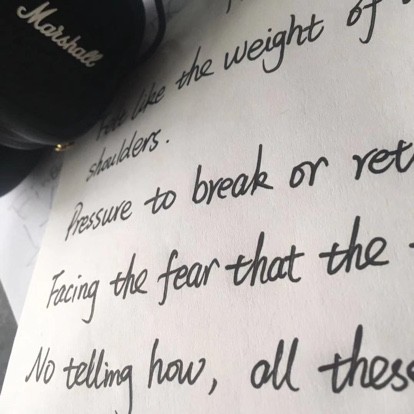 Marshall
like the weight of
shoulders.
Pressure to break or ret
Facing the fear that the
No telling how, all thes